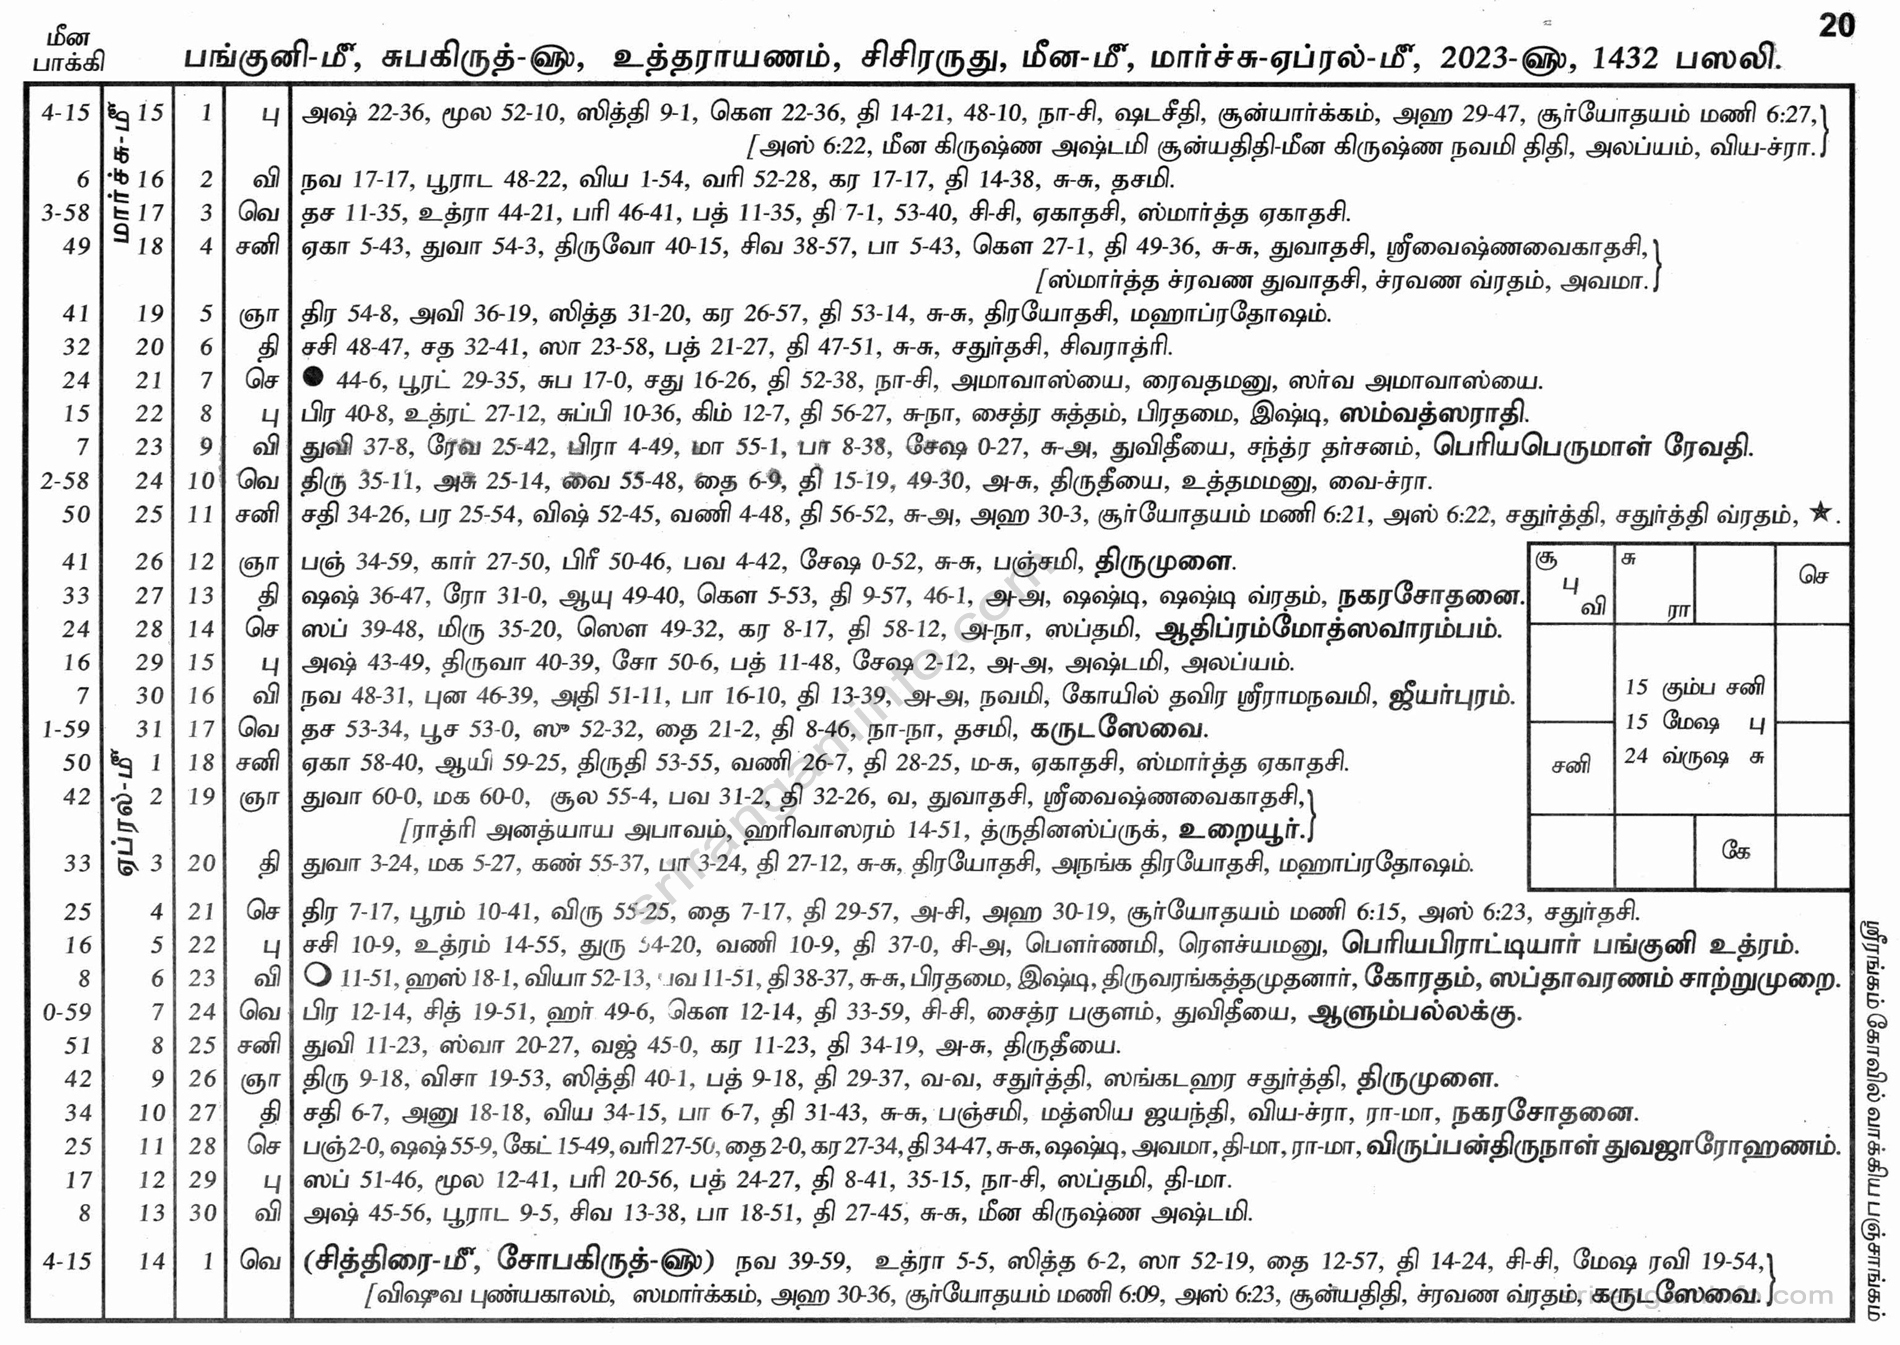 20
மீன
பாக்கி
பங்குனி-மீ, சுபகிருத்-ஹு, உத்தராயணம், சிசிரருது, மீன-மீ, மார்ச்சு-ஏப்ரல்-மீ, 2023-ஹு, 1432 பஸலி.
மார்ச்சு-மீ
4-15 15 1 பு அஷ் 22-36, மூல 52-10, ஸித்தி 9-1, கௌ 22-36, தி 14-21, 48-10, நா-சி, ஷடசீதி, சூன்யார்க்கம், அஹ 29-47, சூர்யோதயம் மணி 6:27,
[அஸ் 6:22, மீன கிருஷ்ண அஷ்டமி சூன்யதிதி-மீன கிருஷ்ண நவமி திதி, அலப்யம், விய-ச்ரா.
6 16 2 வி நவ 17-17, பூராட 48-22, விய 1-54, வரி 52-28, கர 17-17, தி 14-38, சு-சு, தசமி.
3-58 17 3 வெ தச 11-35, உத்ரா 44-21, பரி 46-41, பத் 11-35, தி 7-1, 53-40, சி-சி, ஏகாதசி, ஸ்மார்த்த ஏகாதசி.
49 18 4 சனி ஏகா 5-43, துவா 54-3, திருவோ 40-15, சிவ 38-57, பா 5-43, கௌ 27-1, தி 49-36, சு-சு, துவாதசி, ஸ்ரீவைஷ்ணவைகாதசி,
[ஸ்மார்த்த ச்ரவண துவாதசி, ச்ரவண வ்ரதம், அவமா.
41 19 5 ஞா திர 54-8, அவி 36-19, ஸித்த 31-20, கர 26-57, தி 53-14, சு-சு, திரயோதசி, மஹாப்ரதோஷம்.
32 20 6 தி சசி 48-47, சத 32-41, ஸா 23-58, பத் 21-27, தி 47-51, சு-சு, சதுர்தசி, சிவராத்ரி.
24 21 7 செ ● 44-6, பூரட் 29-35, சுப 17-0, சது 16-26, தி 52-38, நா-சி, அமாவாஸ்யை, ரைவதமனு, ஸர்வ அமாவாஸ்யை.
15 22 8 பு பிர 40-8, உத்ரட் 27-12, சுப்பி 10-36, கிம் 12-7, தி 56-27, சு-நா, சைத்ர சுத்தம், பிரதமை, இஷ்டி, ஸம்வத்ஸராதி.
7 23 9 வி துவி 37-8, ரேவ 25-42, பிரா 4-49, மா 55-1, பா 8-38, சேஷ 0-27, சு-அ, துவிதீயை, சந்த்ர தர்சனம், பெரியபெருமாள் ரேவதி.
2-58 24 10 வெ திரு 35-11, அசு 25-14, வை 55-48, தை 6-9, தி 15-19, 49-30, அ-சு, திருதீயை, உத்தமமனு, வை-ச்ரா.
50 25 11 சனி சதி 34-26, பர 25-54, விஷ் 52-45, வணி 4-48, தி 56-52, சு-அ, அஹ 30-3, சூர்யோதயம் மணி 6:21, அஸ் 6:22, சதுர்த்தி, சதுர்த்தி வ்ரதம், ★.
41 26 12 ஞா பஞ் 34-59, கார் 27-50, பிரீ 50-46, பவ 4-42, சேஷ 0-52, சு-சு, பஞ்சமி, திருமுளை.
33 27 13 தி ஷஷ் 36-47, ரோ 31-0, ஆயு 49-40, கௌ 5-53, தி 9-57, 46-1, அ-அ, ஷஷ்டி, ஷஷ்டி வ்ரதம், நகரசோதனை.
24 28 14 செ ஸப் 39-48, மிரு 35-20, ஸௌ 49-32, கர 8-17, தி 58-12, அ-நா, ஸப்தமி, ஆதிப்ரம்மோத்ஸவாரம்பம்.
16 29 15 பு அஷ் 43-49, திருவா 40-39, சோ 50-6, பத் 11-48, சேஷ 2-12, அ-அ, அஷ்டமி, அலப்யம்.
7 30 16 வி நவ 48-31, புன 46-39, அதி 51-11, பா 16-10, தி 13-39, அ-அ, நவமி, கோயில் தவிர ஸ்ரீராமநவமி, ஜீயர்புரம்.
1-59 31 17 வெ தச 53-34, பூச 53-0, ஸு 52-32, தை 21-2, தி 8-46, நா-நா, தசமி, கருடஸேவை.
ஏப்ரல்-மீ
50 1 18 சனி ஏகா 58-40, ஆயி 59-25, திருதி 53-55, வணி 26-7, தி 28-25, ம-சு, ஏகாதசி, ஸ்மார்த்த ஏகாதசி.
42 2 19 ஞா துவா 60-0, மக 60-0, சூல 55-4, பவ 31-2, தி 32-26, வ, துவாதசி, ஸ்ரீவைஷ்ணவைகாதசி,
[ராத்ரி அனத்யாய அபாவம், ஹரிவாஸரம் 14-51, த்ருதினஸ்ப்ருக், உறையூர்.
33 3 20 தி துவா 3-24, மக 5-27, கண் 55-37, பா 3-24, தி 27-12, சு-சு, திரயோதசி, அநங்க திரயோதசி, மஹாப்ரதோஷம்.
சூ பு வி சு ரா செ
15 கும்ப சனி
15 மேஷ பு
24 வ்ருஷ சு
சனி
கே
25 4 21 செ திர 7-17, பூரம் 10-41, விரு 55-25, தை 7-17, தி 29-57, அ-சி, அஹ 30-19, சூர்யோதயம் மணி 6:15, அஸ் 6:23, சதுர்தசி.
16 5 22 பு சசி 10-9, உத்ரம் 14-55, துரு 54-20, வணி 10-9, தி 37-0, சி-அ, பௌர்ணமி, ரௌச்யமனு, பெரியபிராட்டியார் பங்குனி உத்ரம்.
8 6 23 வி ○ 11-51, ஹஸ் 18-1, வியா 52-13, பவ 11-51, தி 38-37, சு-சு, பிரதமை, இஷ்டி, திருவரங்கத்தமுதனார், கோரதம், ஸப்தாவரணம் சாற்றுமுறை.
0-59 7 24 வெ பிர 12-14, சித் 19-51, ஹர் 49-6, கௌ 12-14, தி 33-59, சி-சி, சைத்ர பகுளம், துவிதீயை, ஆளும்பல்லக்கு.
51 8 25 சனி துவி 11-23, ஸ்வா 20-27, வஜ் 45-0, கர 11-23, தி 34-19, அ-சு, திருதீயை.
42 9 26 ஞா திரு 9-18, விசா 19-53, ஸித்தி 40-1, பத் 9-18, தி 29-37, வ-வ, சதுர்த்தி, ஸங்கடஹர சதுர்த்தி, திருமுளை.
34 10 27 தி சதி 6-7, அனு 18-18, விய 34-15, பா 6-7, தி 31-43, சு-சு, பஞ்சமி, மத்ஸிய ஜயந்தி, விய-ச்ரா, ரா-மா, நகரசோதனை.
25 11 28 செ பஞ் 2-0, ஷஷ் 55-9, கேட் 15-49, வரி 27-50, தை 2-0, கர 27-34, தி 34-47, சு-சு, ஷஷ்டி, அவமா, தி-மா, ரா-மா, விருப்பன்திருநாள் துவஜாரோஹணம்.
17 12 29 பு ஸப் 51-46, மூல 12-41, பரி 20-56, பத் 24-27, தி 8-41, 35-15, நா-சி, ஸப்தமி, தி-மா.
8 13 30 வி அஷ் 45-56, பூராட 9-5, சிவ 13-38, பா 18-51, தி 27-45, சு-சு, மீன கிருஷ்ண அஷ்டமி.
4-15 14 1 வெ (சித்திரை-மீ, சோபகிருத்-ஹு) நவ 39-59, உத்ரா 5-5, ஸித்த 6-2, ஸா 52-19, தை 12-57, தி 14-24, சி-சி, மேஷ ரவி 19-54,
[விஷுவ புண்யகாலம், ஸமார்க்கம், அஹ 30-36, சூர்யோதயம் மணி 6:09, அஸ் 6:23, சூன்யதிதி, ச்ரவண வ்ரதம், கருடஸேவை.
ஸ்ரீரங்கம் கோவில் வாக்கிய பஞ்சாங்கம்
srirangaminfo.com
srirangaminfo.com